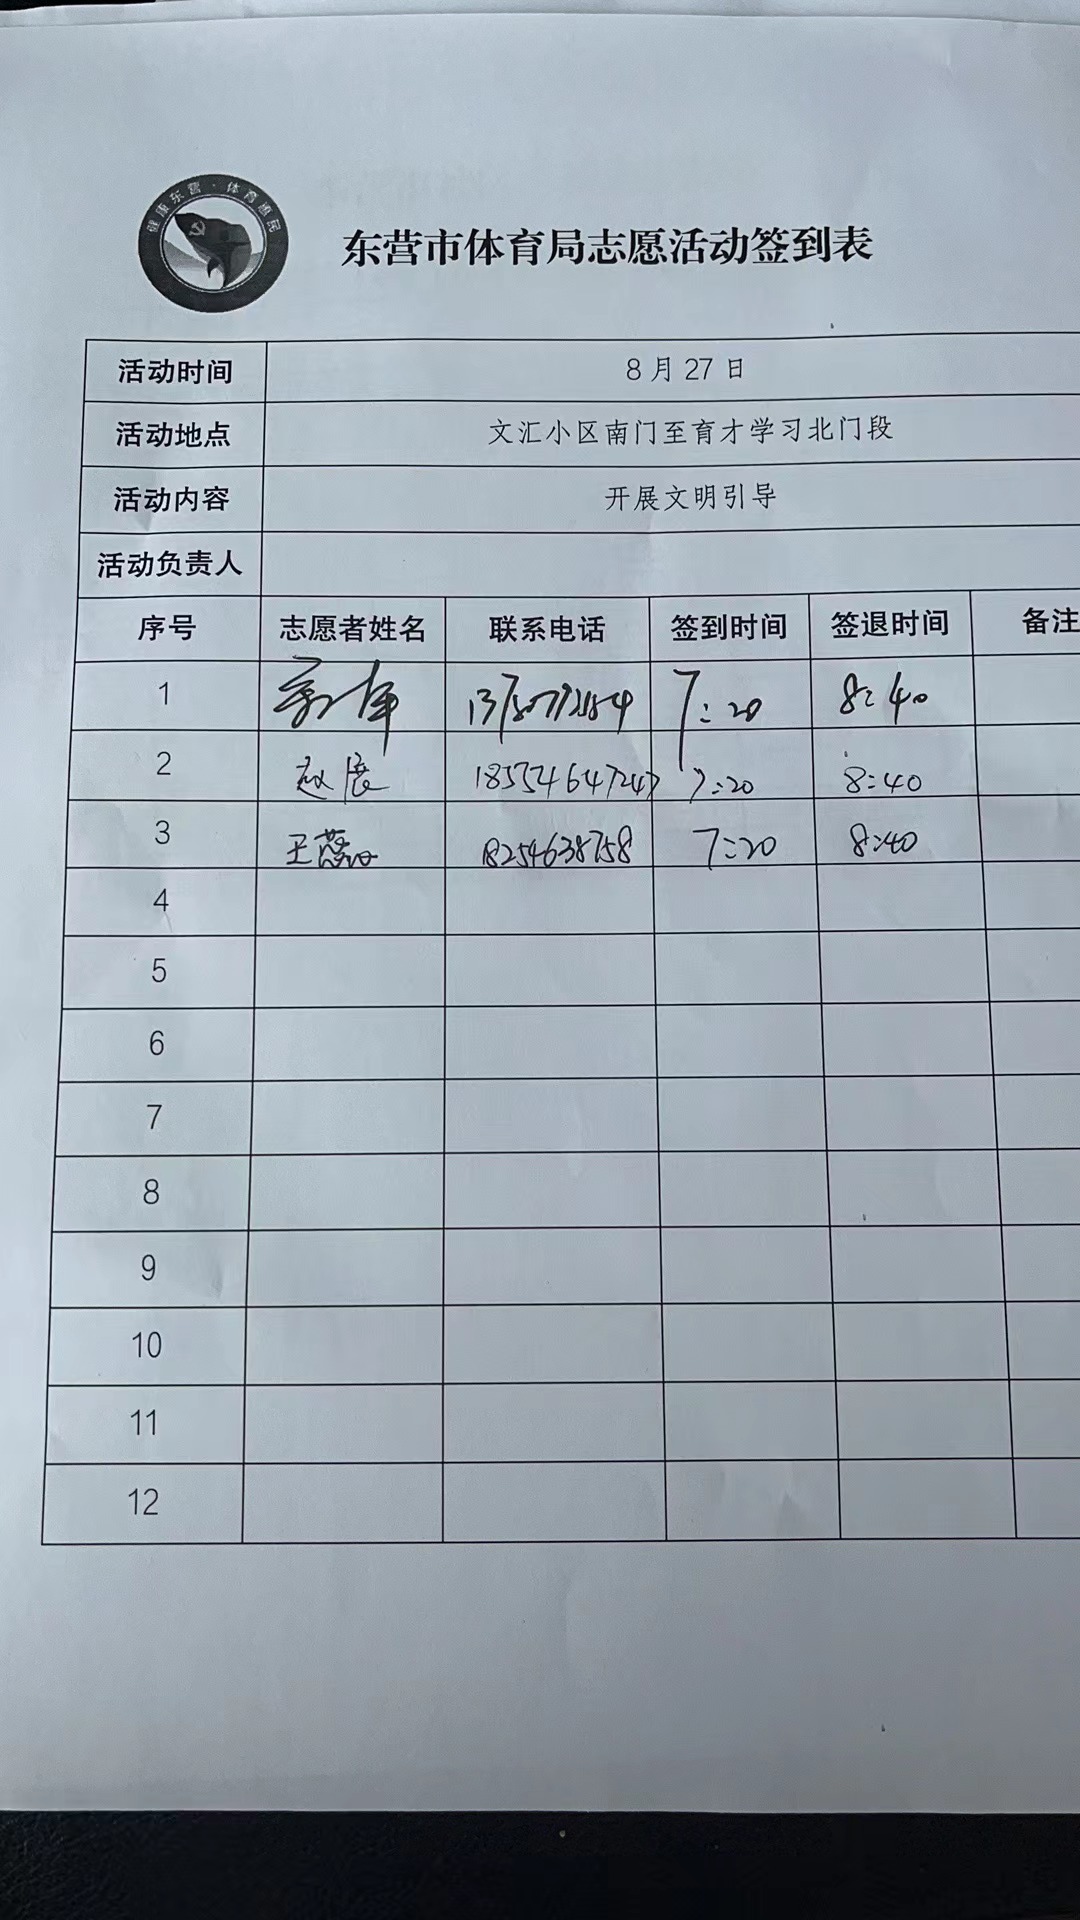 健康东营·体育惠民
东营市体育局志愿活动签到表
活动时间 8月27日
活动地点 文汇小区南门至育才学习北门段
活动内容 开展文明引导
活动负责人
序号 志愿者姓名 联系电话 签到时间 签退时间 备注
1 7:20 8:40
2 赵展 18554647247 7:20 8:40
3 王 18254638758 7:20 8:40
4
5
6
7
8
9
10
11
12